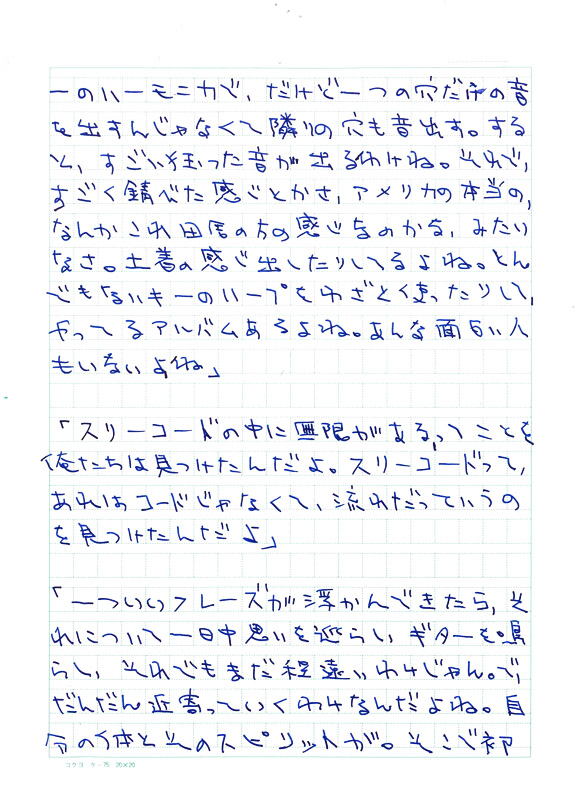 一のハーモニカで、だけど一つの穴だけの音
を出すんじゃなくて隣りの穴も音出す。する
と、すごい狂った音が出るわけね。それで、
すごく錆びた感じとかさ、アメリカの本当の、
なんかこれ田舎の方の感じなのかな、みたい
なさ。土着の感じ出したりしてるよね。とん
でもないキーのハープをわざと使ったりして、
やってるアルバムあるよね。あんな面白い人
もいないよね」
「スリーコードの中に無限がある、ってことを
俺たちは見つけたんだよ。スリーコードって、
あれはコードじゃなくて、流れだっていうの
を見つけたんだよ」
「一ついいフレーズが浮かんできたら、そ
れについて一日中思いを巡らし、ギターを鳴
らし、それでもまだ程遠いわけじゃん。で、
だんだん近寄っていくわけなんだよね。自
分の体とそのスピリットが。そこで初
コクヨ ケ-75 20×20